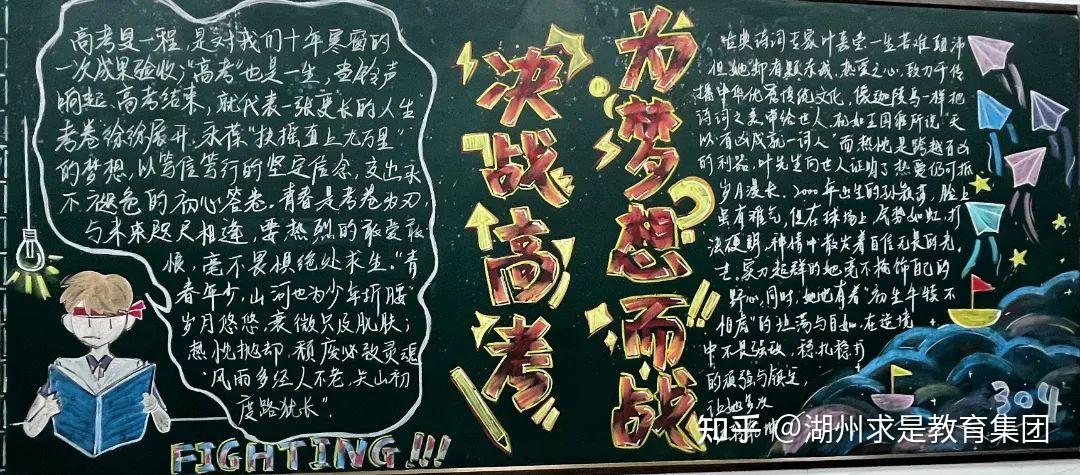 高考是一程,是对我们十年寒窗的
一次成果验收;"高考"也是一生,当铃声
响起,高考结束,就代表一张更长的人生
考卷徐徐展开,永葆"扶摇直上九万里"
的梦想,以笃信笃行的坚定信念,交出永
不褪色的初心答卷。青春是考卷为刃,
与未来咫尺相逢,要热烈的敢爱敢
恨,毫不畏惧绝处求生。"青
春年少,山河也为少年折腰"
岁月悠悠,衰微只及肌肤;
热忱抛却,颓废必致灵魂
"风雨多经人不老,关山初
度路犹长"。
FIGHTING!!!
决战高考
为梦想而战
古典诗词专家叶嘉莹一生苦难颠沛
但她却有颗赤诚、热爱之心,致力于传
播中华优秀传统文化,像迦陵鸟一样把
诗词之美带给世人,有如王国维所说"天
以百凶成就一词人"而热忱是跨越百凶
的利器,叶先生向世人证明了热爱仍可抵
岁月漫长。2000年出生的孙颖莎,脸上
虽有稚气,但在球场上,气势如虹,打
法硬朗,神情中散发着自信无畏的光
芒。实力超群的她毫不掩饰自己的
野心,同时,她也有着"初生牛犊不
怕虎"的坦荡与自如,在逆境
中不是强敌,稳扎稳打
的顽强与镇定,
让她多次
304
知乎 @湖州求是教育集团